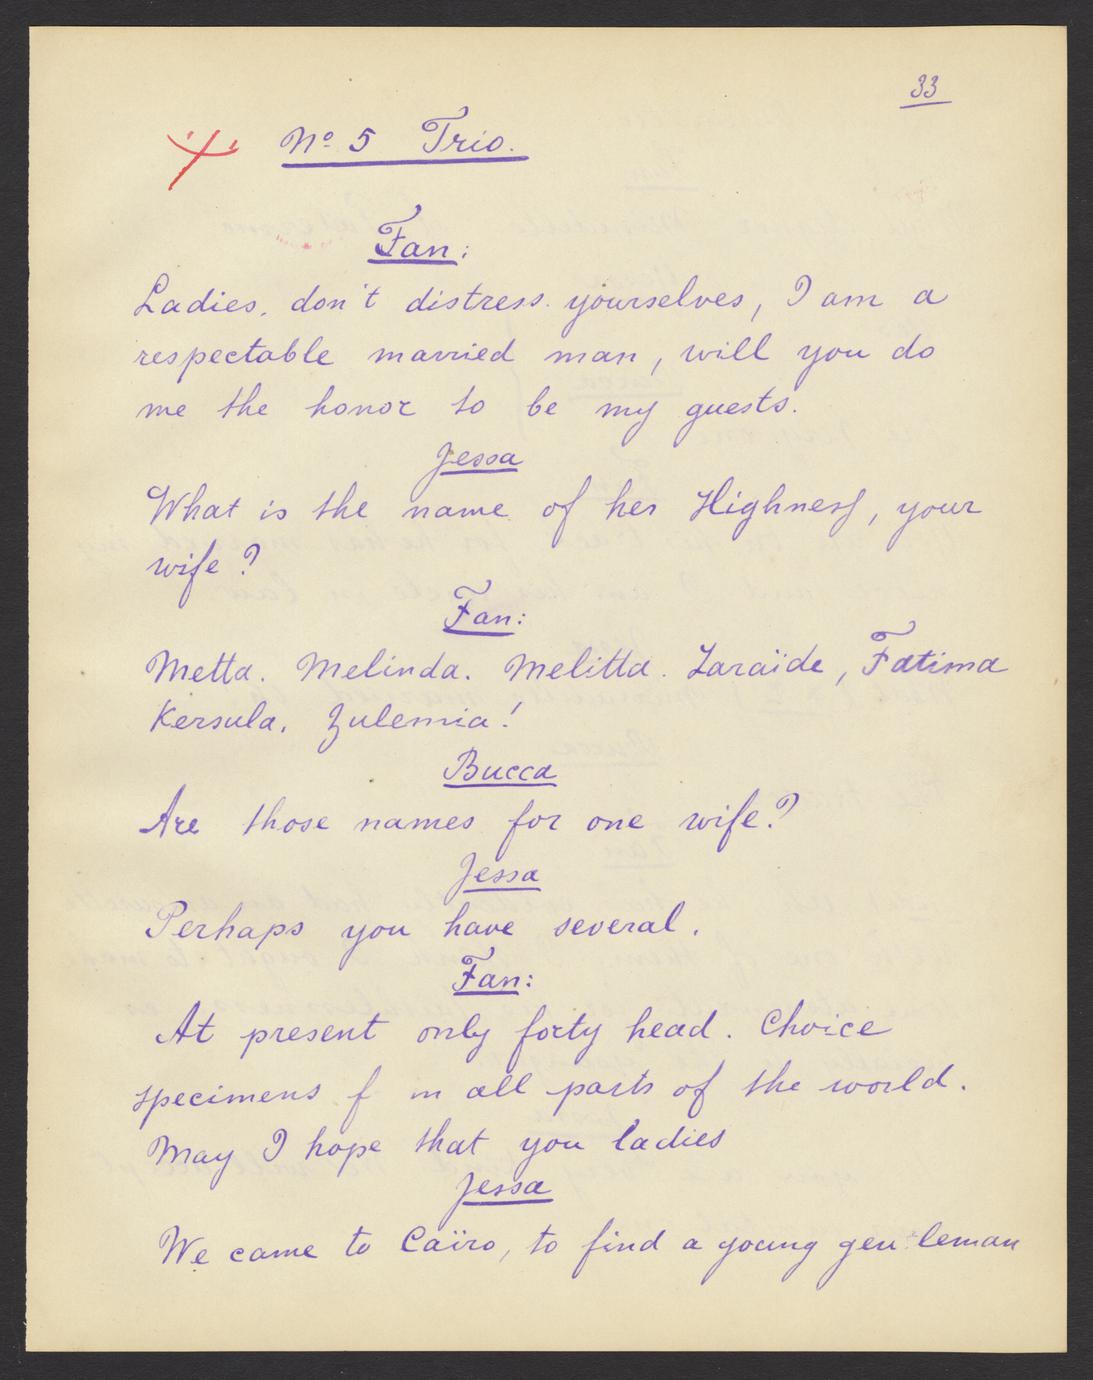 33
Nº 5 Trio.
Fan:
Ladies. don't distress yourselves, I am a
respectable married man, will you do
me the honor to be my guests.
Jessa
What is the name of her Highness, your
wife?
Fan:
Metta. Melinda. Melitta. Zaraïde, Fatima
Kersula. Zulemia!
Bucca
Are those names for one wife?
Jessa
Perhaps you have several.
Fan:
At present only forty head. Choice
specimens f m all parts of the world.
May I hope that you ladies
Jessa
We came to Caïro, to find a young gentleman